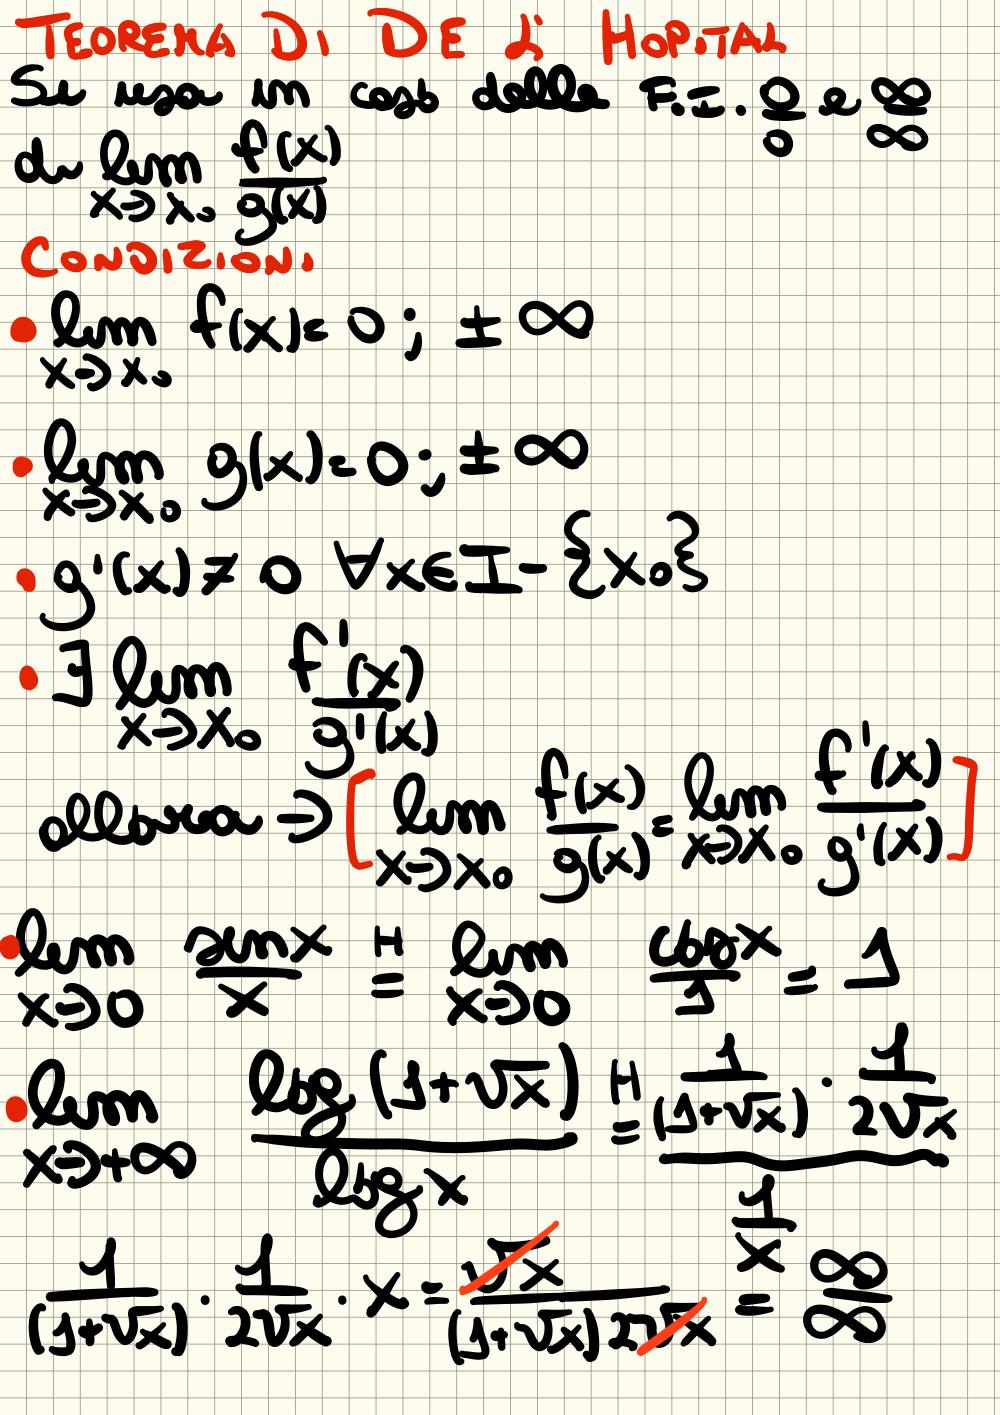 TEOREMA DI DE L' HOPITAL
Si usa in caso delle F.I. 0/0 e ∞/∞
di lim x→x₀ f(x)/g(x)
CONDIZIONI
• lim x→x₀ f(x) = 0; ± ∞
• lim x→x₀ g(x) = 0; ± ∞
• g'(x) ≠ 0 ∀x∈I - {x₀}
• ∃ lim x→x₀ f'(x)/g'(x)
allora → [lim x→x₀ f(x)/g(x) = lim x→x₀ f'(x)/g'(x)]
• lim x→0 sinx/x H= lim x→0 cosx/1 = 1
• lim x→+∞ log(1+√x)/log x H= (1/(1+√x) · 1/(2√x))/(1/x)
1/(1+√x) · 1/(2√x) · x = √x/((1+√x)2√x) = ∞/∞